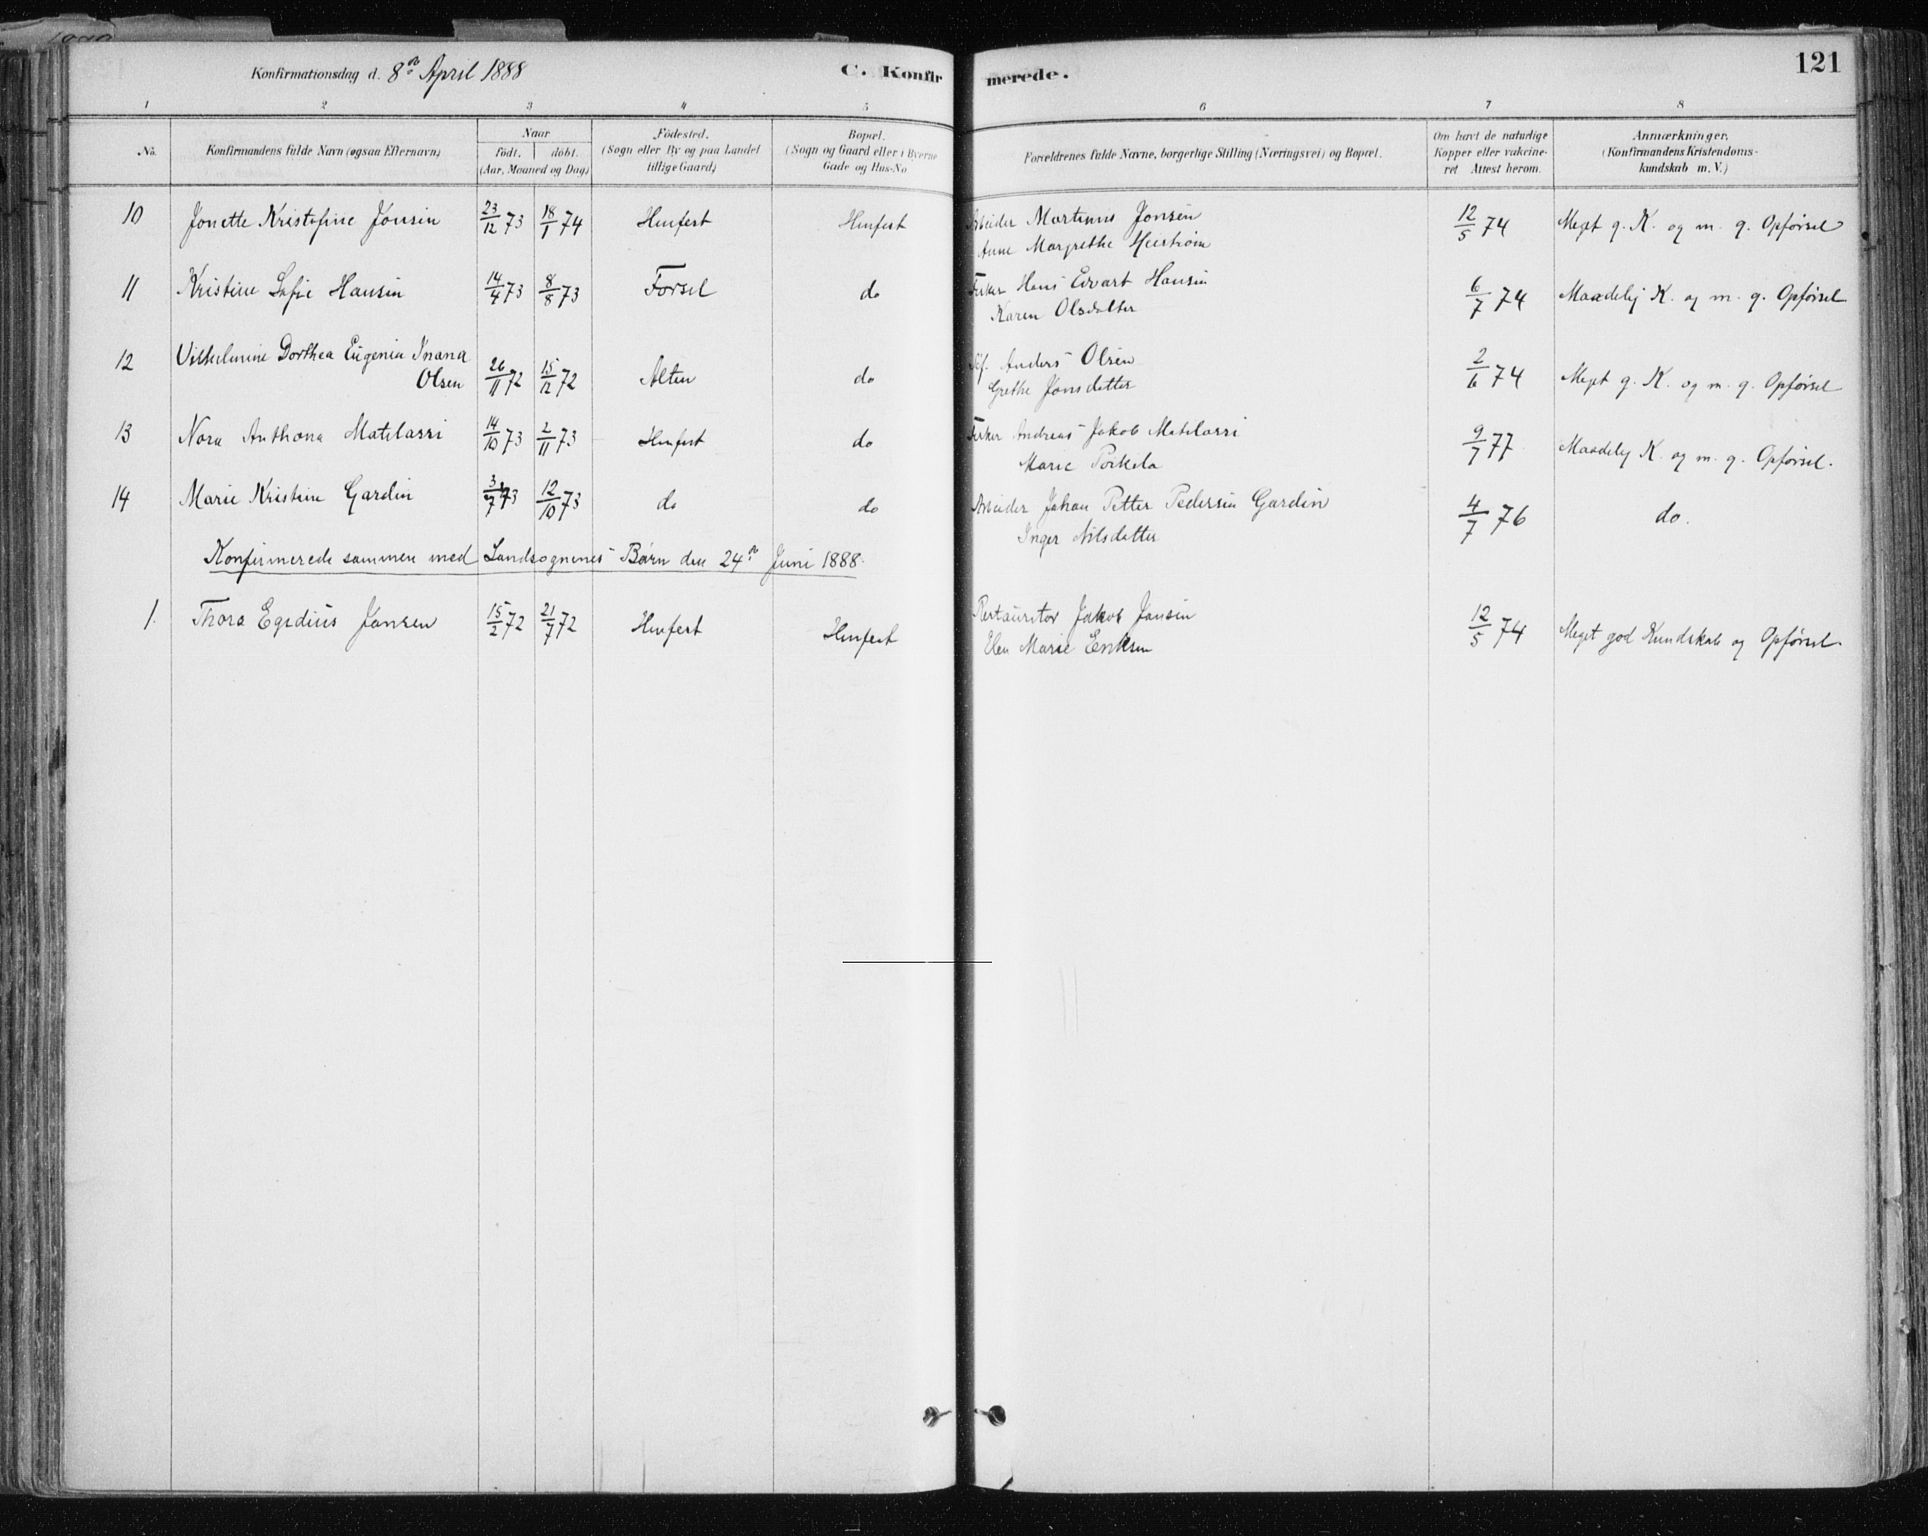 Konfirmationsdag d. 8de April 1888 C. Konfirmerede. 121
1 2 3 4 5 6 7 8
No. Konfirmandens fulde Navn (ogsaa Efternavn) Naar født. døbt. (Aar, Maaned og Dag) Fødested. (Sogn eller By og paa Landet tillige Gaard) Bopæl. (Sogn og Gaard eller i Byerne Gade og Hus-No Forældrenes fulde Navne, borgerlige Stilling (Næringsvei) og Bopæl. Om havt de naturlige Kopper eller vakcineret Attest herom. Anmærkninger. (Konfirmandens Kristendomskundskab m. V.)
10 Jonette Kristofine Jonsen 23/12 73 18/1 74 Hmfest Hmfest Arbeider Martinus Jonsen 12/5 74 Meget g. K. og m. g. Opførsel
Anne Margrethe
11 Kristine Sofie Hansen 14/4 73 8/8 73 Forsøl do Fisker Hans Edvart Hansen 6/7 74 Maadelig K. og m. g. Opførsel
Karen Olsdatter
12 Vilhelmine Dorthea Eugenia Inana
Olsen 26/11 72 15/12 72 Alten do Anders Olsen 2/6 74 Meget g. K. og m. g. Opførsel
Grethe Jonsdatter
13 Nora Anthona Matilassi 14/10 73 2/11 73 Hmfest do Fisker Andreas Jakob Matilassi 9/7 77 Maadelig K. og m. g. Opførsel.
Marie Porkela
14 Marie Kristine Gardin 3/7 73 12/10 73 do do Arbeider Johan Petter Pedersen Gardin 4/7 76 do.
Inger Nilsdatter
Konfirmerede sammen med Landsognenes Børn den 24de Juni 1888.
1. Thora Egidius Jansen 15/2 72 21/7 72 Hmfest Hmfest Restauratør Jakob Jansen 12/5 74 Meget god Kundskab og Opførsel.
Elen Marie Eriksen